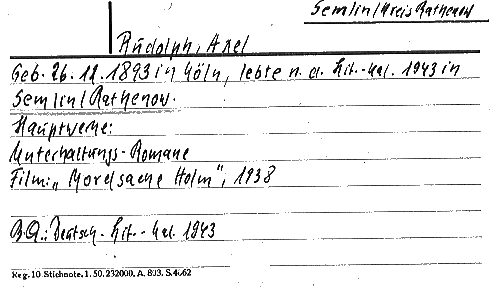 Semlin/Kreis Rathenow
Rudolph, Axel
Geb. 26.12.1893 in Köln, lebte n. d. Lit.-Kal. 1943 in
Semlin/Rathenow.
Hauptwerke:
Unterhaltungs-Romane
Film: „Mordsache Holm", 1938
B.Qu.: Deutsch. Lit.-Kal. 1943
Reg. 10 Stichnote. 1. 50. 232000, A. 803. S.4/62